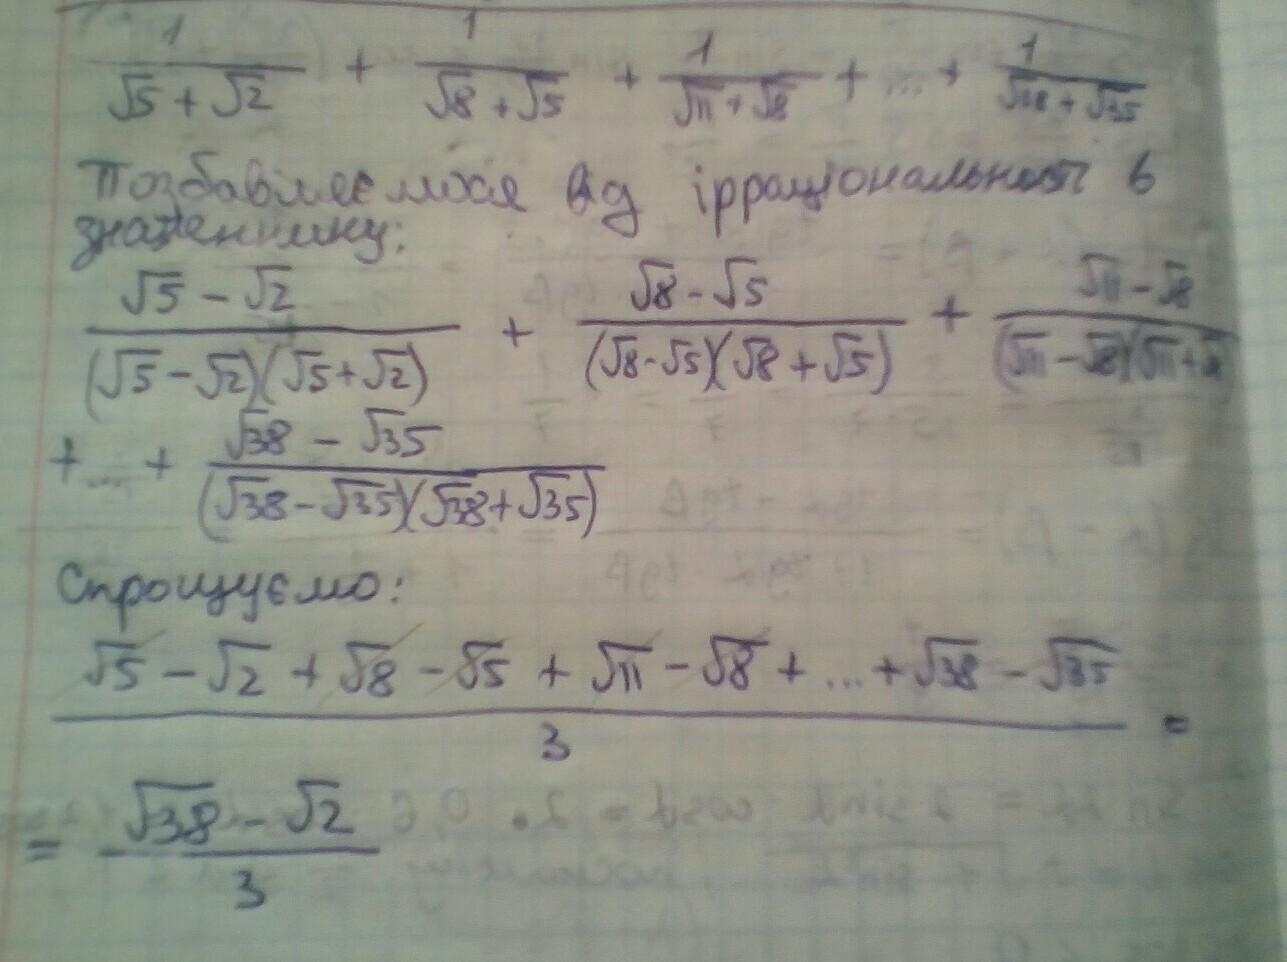 1/(√5 + √2) + 1/(√8 + √5) + 1/(√11 + √8) + ... + 1/(√38 + √35)
Позбавляємося від ірраціональності в
знаменнику:
(√5 - √2)/((√5 - √2)(√5 + √2)) + (√8 - √5)/((√8 - √5)(√8 + √5)) + (√11 - √8)/((√11 - √8)(√11 + √8))
+ ... + (√38 - √35)/((√38 - √35)(√38 + √35))
Спрощуємо:
(√5 - √2 + √8 - √5 + √11 - √8 + ... + √38 - √35)/3 =
= (√38 - √2)/3